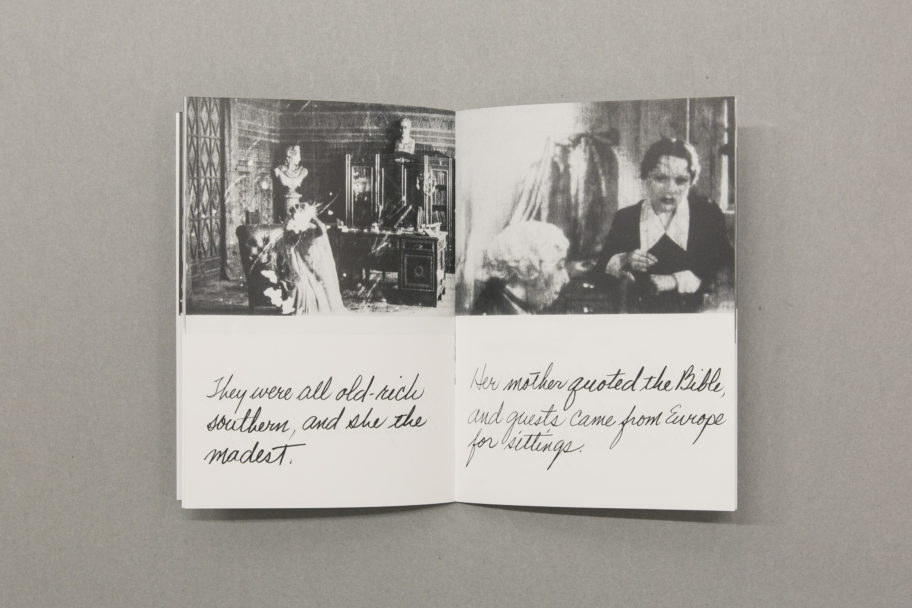 They were all old-rich
southern, and she the
madest.
Her mother quoted the Bible,
and guests came from Europe
for sittings.